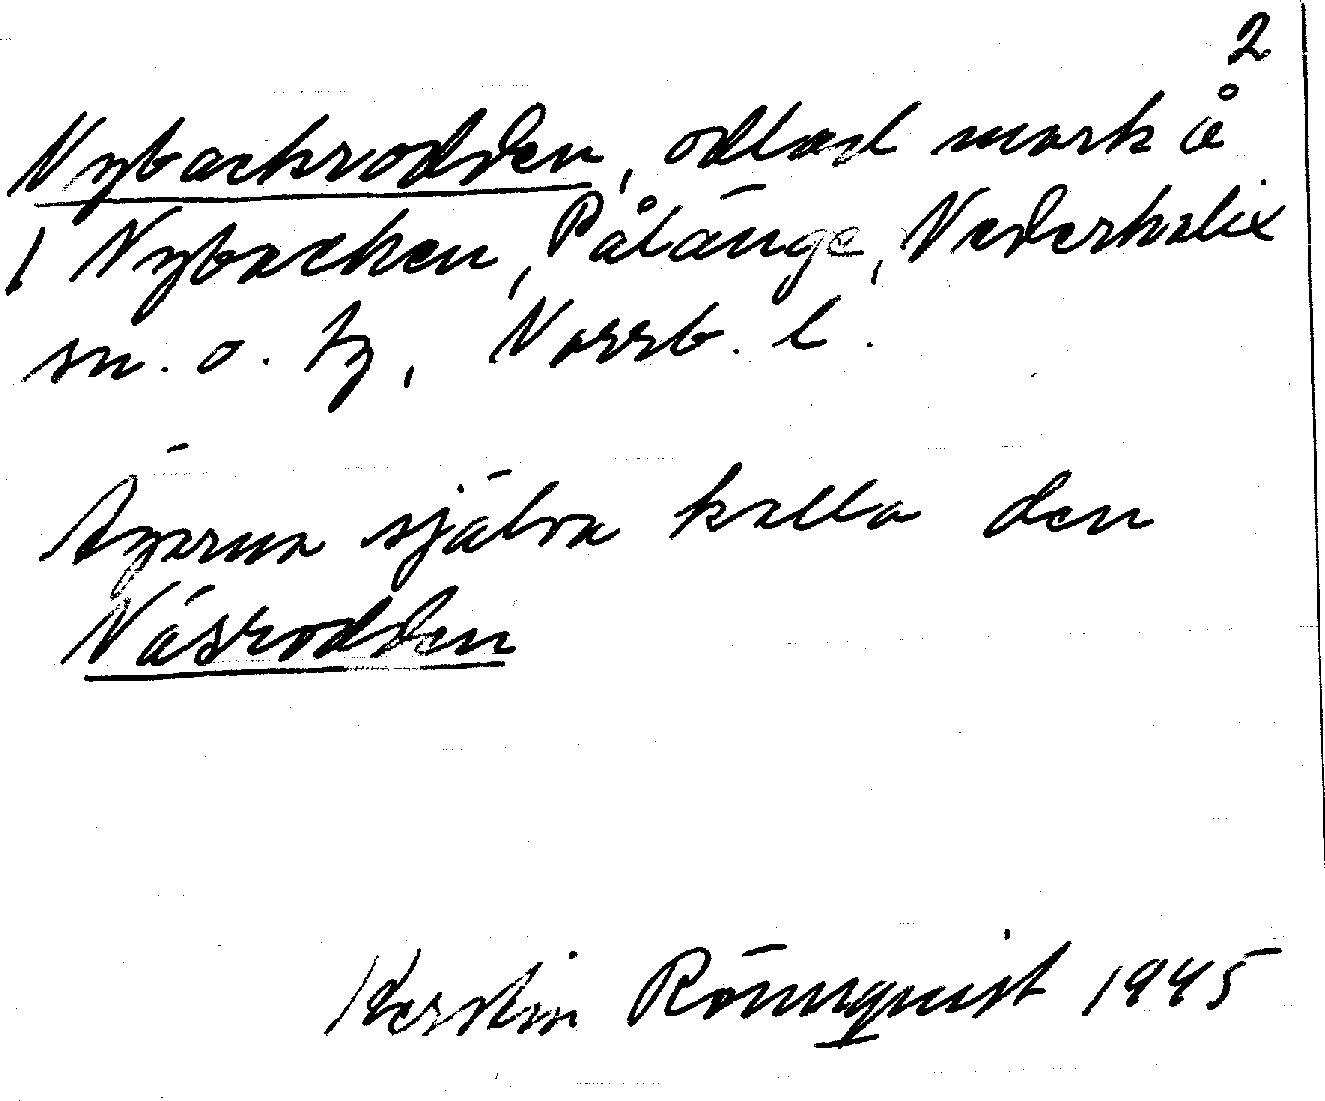 2
Nybackrodden, odlad mark å
1 Nybacken, Pålänge, Nederkalix
sn. o. tg, Norrb. l.
Ägarna själva kalla den
Näsrodden
Kerstin Rönnquist 1945